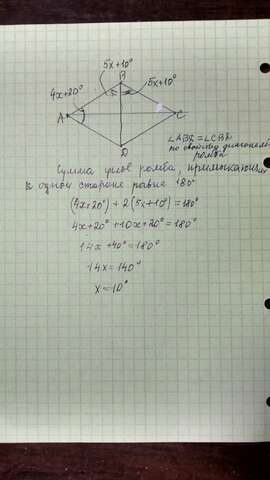 5x+10°
B
5x+10°
4x+20°
A
C
D
∠ABD=∠CBD
по свойству диагоналей
ромба
Сумма углов ромба, примыкающих
к одной стороне равна 180°
(4x+20°)+2(5x+10°)=180°
4x+20°+10x+20°=180°
14x+40°=180°
14x=140°
x=10°